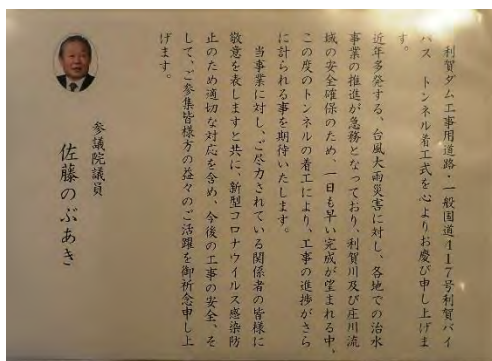 利賀ダム工事用道路・一般国道417号利賀バイ
パス トンネル着工式を心よりお慶び申し上げま
す。
近年多発する、台風大雨災害に対し、各地での治水
事業の推進が急務となっており、利賀川及び庄川流
域の安全確保のため、一日も早い完成が望まれる中、
この度のトンネルの着工により、工事の進捗がさら
に計られる事を期待いたします。
当事業に対し、ご尽力されている関係者の皆様に
敬意を表しますと共に、新型コロナウイルス感染防
止のため適切な対応を含め、今後の工事の安全、そ
して、ご参集皆様方の益々のご活躍を御祈念申し上
げます。
参議院議員
佐藤のぶあき